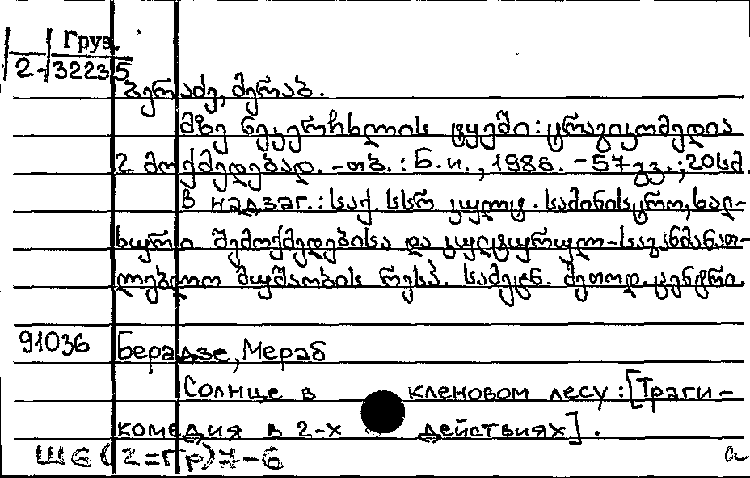 Груз.
2-32235
ბერაძე, მერაბ.
მზე ნეკერჩხლის ტყეში: ტრაგიკომედია
2 მოქმედებად. - თბ.: Б.и., 1986. - 57 გვ.; 20სმ.
В надзаг.: საქ. სსრ კულტ. სამინისტრო, ხალ-
ხური შემოქმედებისა და კულტურულ-საგანმანათ-
ლებლო მუშაობის რესპ. სამეცნ. მეთოდ. ცენტრი.
91036 Берадзе, Мераб
Солнце в кленовом лесу: [Траги-
комедия в 2-х действиях].
Ш6(2=Гр)7-6